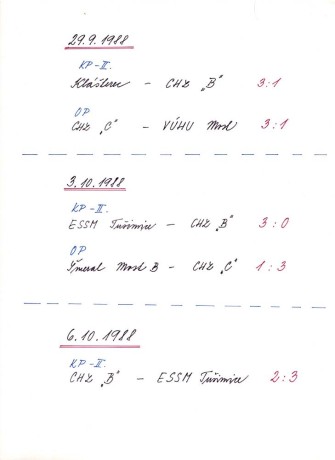 29.9.1988
KP-II.
Klášterec - CHZ „B" 3:1
OP
CHZ „C" - VÚHU Most 3:1
3.10.1988
KP-II.
ESSM Tušimice - CHZ „B" 3:0
OP
Šmeral Most B - CHZ „C" 1:3
6.10.1988
KP-II.
CHZ „B" - ESSM Tušimice 2:3